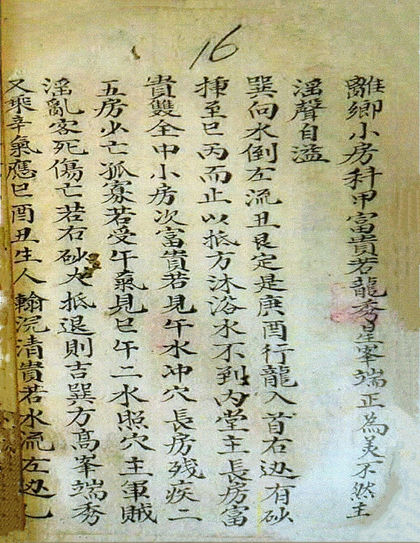 16
離鄉小房科甲富貴若龍秀星峯端正為美不然主
淫聲自溢
巽向水倒左流丑艮定是庚酉行龍入首右边有砂
揷至巳丙而止以抵方沐浴水不到内堂主長房富
貴雙全中小房次富貴若見午水冲穴長房残疾二
五房少亡孤寡若受午氣見巳午二水照穴主軍賊
淫亂客死傷亡若右砂火抵退則吉巽方髙峯端秀
又乘辛氣應巳酉丑生人翰浣清貴若水流左边